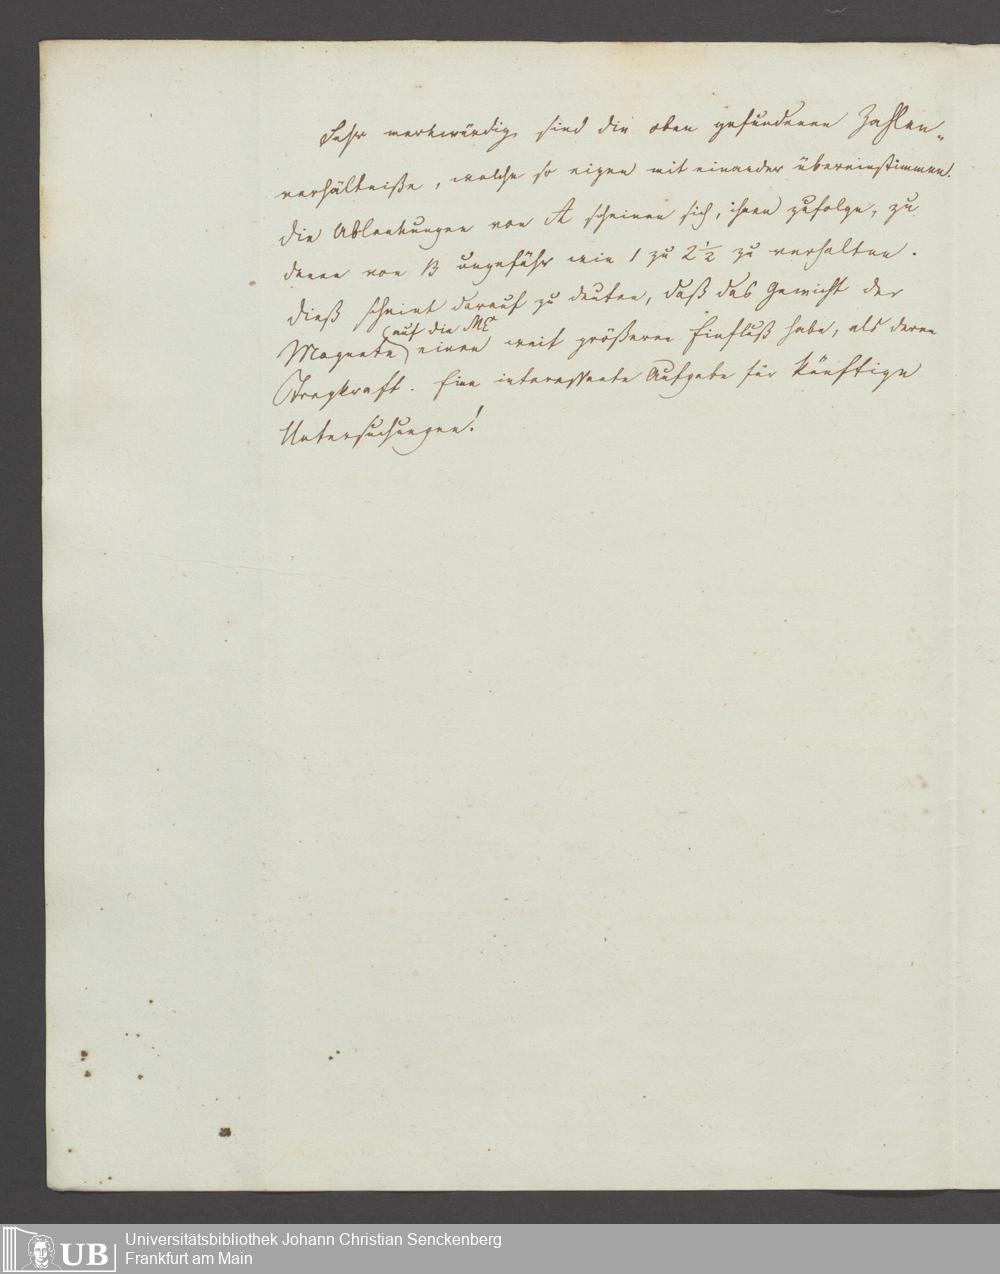 Sehr merkwürdig sind die oben gefundenen Zahlen„
verhältniße, welche so eigen mit einander übereinstimmen.
Die Ablenkungen von A scheinen sich, ihnen zufolge, zu
denen von B ungefähr wie 1 zu 2½ zu verhalten.
Dieß scheint darauf zu deuten, daß das Gewicht der
auf die
Magnete einen weit größeren Einfluß habe, als deren
Tragkraft. Eine interessante Aufgabe für künftige
Untersuchungen!
UB
Universitätsbibliothek Johann Christian Senckenberg
Frankfurt am Main